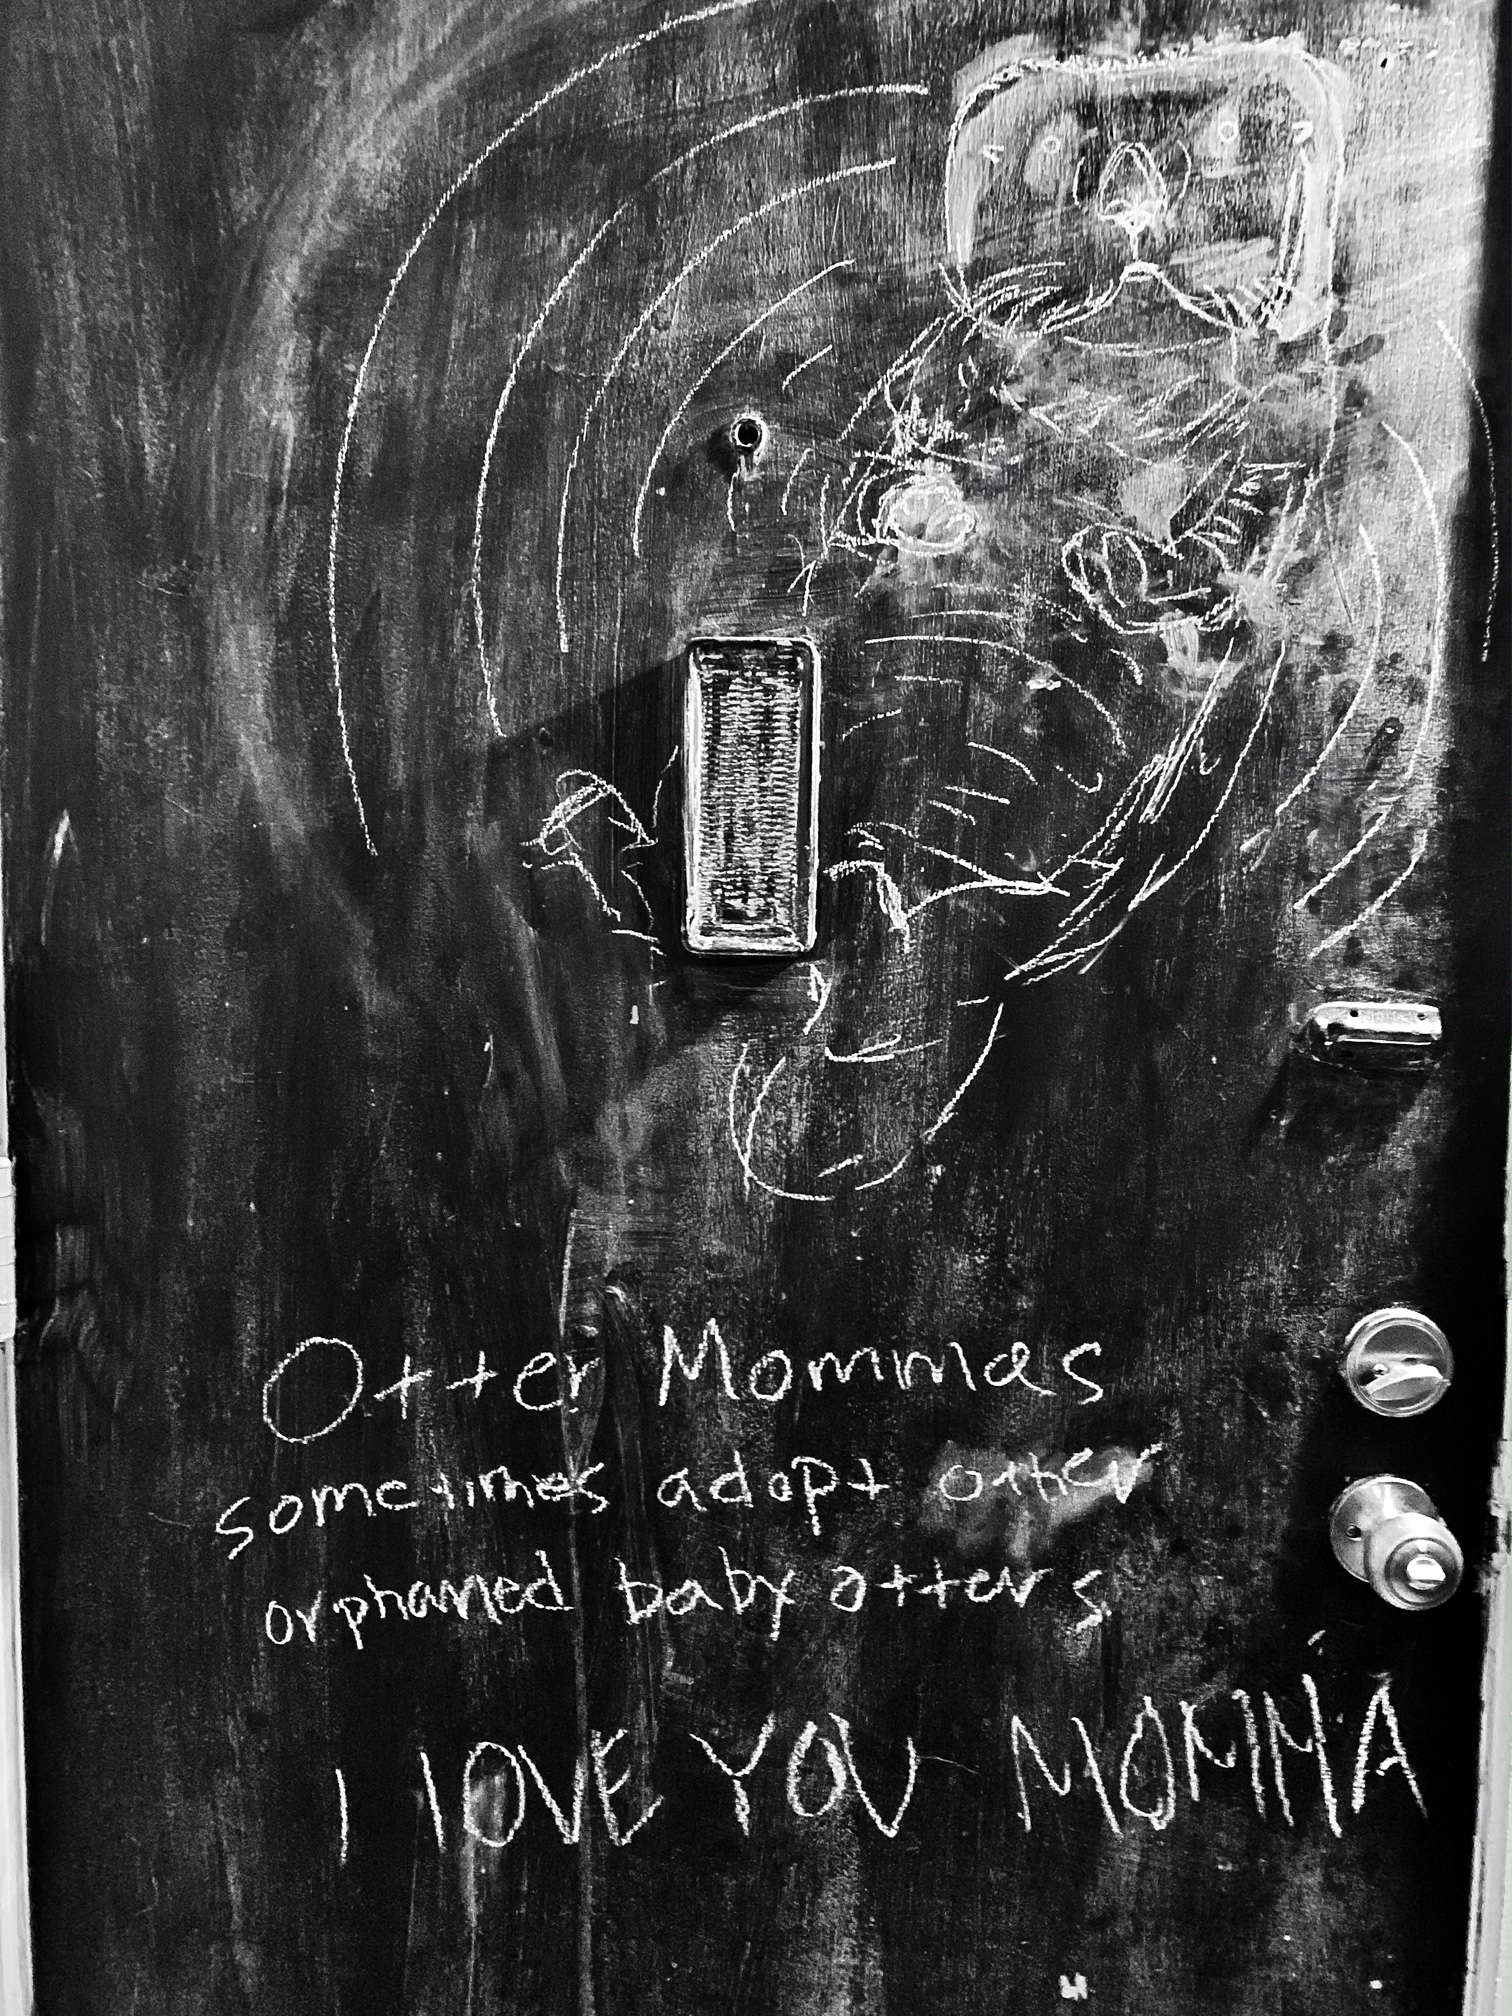 Otter Mommas
sometimes adopt other
orphaned baby otters
I lOVE YOU MOMMA